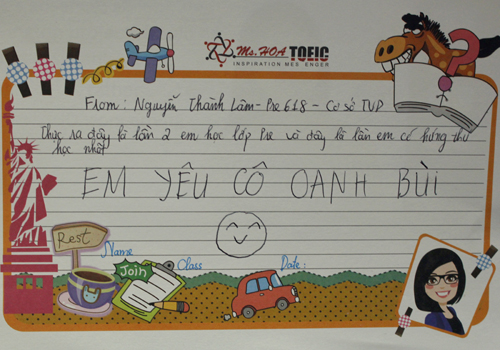 Ms. HOA TOEIC
INSPIRATION MESSENGER
From: Nguyễn Thành Lâm - Pre 618 - Cơ sở TVD
Thực ra đây là lần 2 em học lớp Pre và đây là lần em có hứng thú
học nhất
EM YÊU CÔ OANH BÙI
Rest
Name
Join
Class
Date: